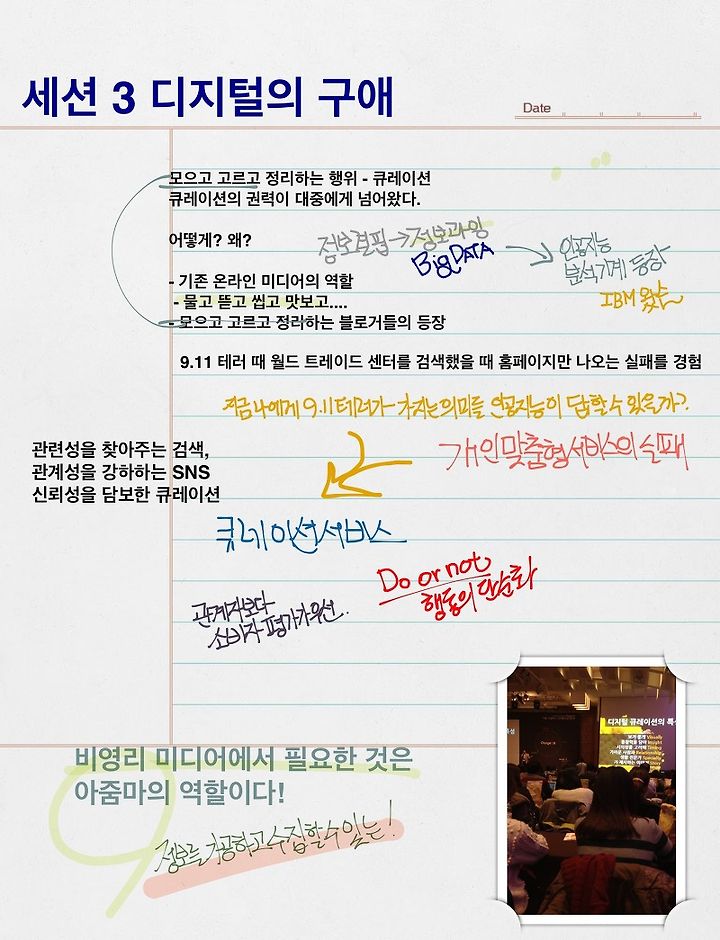 세션 3 디지털의 구애
Date
모으고 고르고 정리하는 행위 - 큐레이션
큐레이션의 권력이 대중에게 넘어왔다.
어떻게? 왜?
정보결핍 → 정보과잉
Big DATA
인공지능
분석기계 등장
IBM 왓슨
- 기존 온라인 미디어의 역할
- 물고 뜯고 씹고 맛보고....
- 모으고 고르고 정리하는 블로거들의 등장
9.11 테러 때 월드 트레이드 센터를 검색했을 때 홈페이지만 나오는 실패를 경험
지금 나에게 9.11 테러가 가지는 의미를 인공지능이 답할 수 있을까?
개인맞춤형서비스의 실패
관련성을 찾아주는 검색,
관계성을 강하하는 SNS
신뢰성을 담보한 큐레이션
큐레이션서비스
Do or not
행동의 단순화
관계자보다
소비자 평가가 우선.
비영리 미디어에서 필요한 것은
아줌마의 역할이다!
정보를 가공하고 수집할 수 있는!
디지털 큐레이션의 특성
보기 좋게 Visually